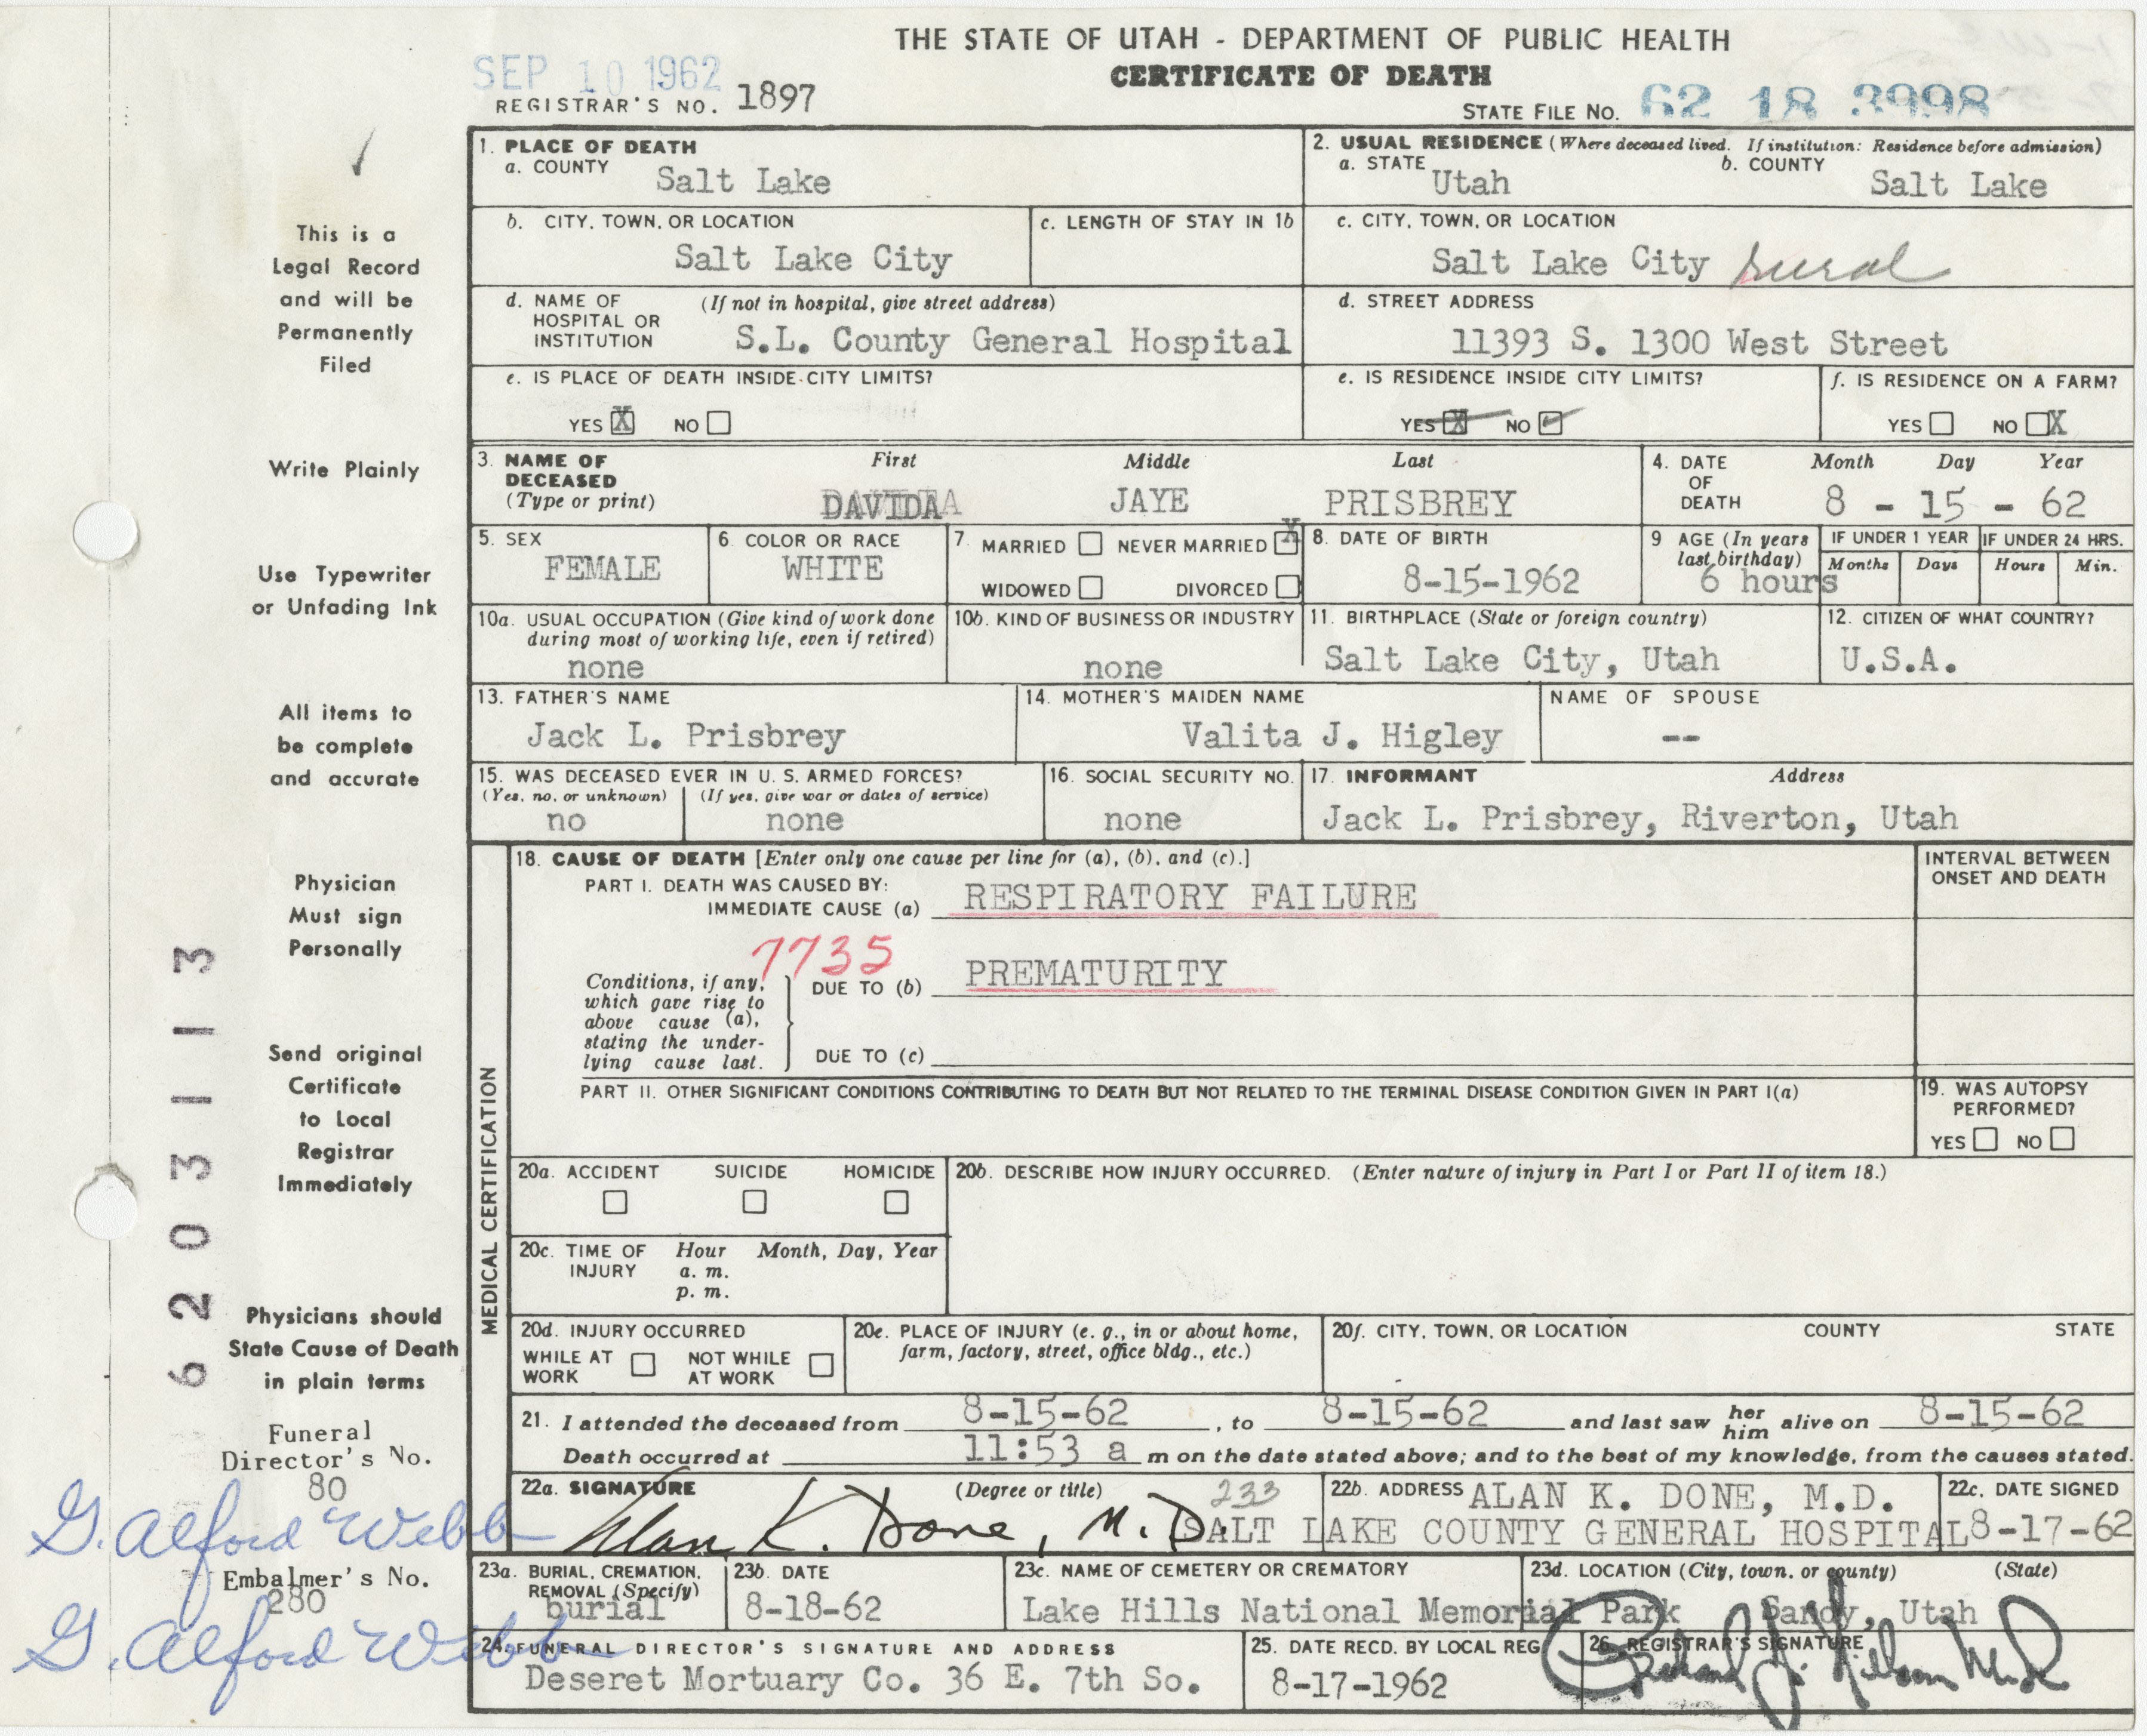 THE STATE OF UTAH - DEPARTMENT OF PUBLIC HEALTH
CERTIFICATE OF DEATH
SEP 10 1962
REGISTRAR'S NO. 1897
STATE FILE NO. 62 18 3998
This is a
Legal Record
and will be
Permanently
Filed
Write Plainly
Use Typewriter
or Unfading Ink
All items to
be complete
and accurate
Physician
Must sign
Personally
Send original
Certificate
to Local
Registrar
Immediately
Physicians should
State Cause of Death
in plain terms
Funeral
Director's No.
80
G. Alford Webb
Embalmer's No.
280
G. Alford Webb
6203113
1. PLACE OF DEATH
a. COUNTY Salt Lake
2. USUAL RESIDENCE (Where deceased lived. If institution: Residence before admission)
a. STATE Utah b. COUNTY Salt Lake
b. CITY, TOWN, OR LOCATION
Salt Lake City
c. LENGTH OF STAY IN 1b
c. CITY, TOWN, OR LOCATION
Salt Lake City rural
d. NAME OF HOSPITAL OR INSTITUTION (If not in hospital, give street address)
S.L. County General Hospital
d. STREET ADDRESS
11393 S. 1300 West Street
e. IS PLACE OF DEATH INSIDE CITY LIMITS?
YES X NO
e. IS RESIDENCE INSIDE CITY LIMITS?
YES X NO ✓
f. IS RESIDENCE ON A FARM?
YES NO X
3. NAME OF DECEASED (Type or print) First Middle Last
DAVIDA JAYE PRISBREY
4. DATE OF DEATH Month Day Year
8 - 15 - 62
5. SEX
FEMALE
6. COLOR OR RACE
WHITE
7. MARRIED NEVER MARRIED X
WIDOWED DIVORCED
8. DATE OF BIRTH
8-15-1962
9 AGE (In years last birthday)
6 hours
IF UNDER 1 YEAR IF UNDER 24 HRS.
Months Days Hours Min.
10a. USUAL OCCUPATION (Give kind of work done during most of working life, even if retired)
none
10b. KIND OF BUSINESS OR INDUSTRY
none
11. BIRTHPLACE (State or foreign country)
Salt Lake City, Utah
12. CITIZEN OF WHAT COUNTRY?
U.S.A.
13. FATHER'S NAME
Jack L. Prisbrey
14. MOTHER'S MAIDEN NAME
Valita J. Higley
NAME OF SPOUSE
--
15. WAS DECEASED EVER IN U. S. ARMED FORCES?
(Yes, no, or unknown) (If yes, give war or dates of service)
no none
16. SOCIAL SECURITY NO.
none
17. INFORMANT Address
Jack L. Prisbrey, Riverton, Utah
MEDICAL CERTIFICATION
18. CAUSE OF DEATH [Enter only one cause per line for (a), (b), and (c).]
INTERVAL BETWEEN ONSET AND DEATH
PART I. DEATH WAS CAUSED BY:
IMMEDIATE CAUSE (a) RESPIRATORY FAILURE
7735
Conditions, if any, which gave rise to above cause (a), stating the underlying cause last.
DUE TO (b) PREMATURITY
DUE TO (c)
PART II. OTHER SIGNIFICANT CONDITIONS CONTRIBUTING TO DEATH BUT NOT RELATED TO THE TERMINAL DISEASE CONDITION GIVEN IN PART I(a)
19. WAS AUTOPSY PERFORMED?
YES NO
20a. ACCIDENT SUICIDE HOMICIDE
20b. DESCRIBE HOW INJURY OCCURRED. (Enter nature of injury in Part I or Part II of item 18.)
20c. TIME OF INJURY Hour Month, Day, Year
a. m.
p. m.
20d. INJURY OCCURRED
WHILE AT WORK NOT WHILE AT WORK
20e. PLACE OF INJURY (e. g., in or about home, farm, factory, street, office bldg., etc.)
20f. CITY, TOWN, OR LOCATION COUNTY STATE
21. I attended the deceased from 8-15-62, to 8-15-62 and last saw her him alive on 8-15-62
Death occurred at 11:53 a m on the date stated above; and to the best of my knowledge, from the causes stated.
22a. SIGNATURE (Degree or title) 233
Alan K. Done, M.D.
22b. ADDRESS ALAN K. DONE, M.D.
SALT LAKE COUNTY GENERAL HOSPITAL
22c. DATE SIGNED
8-17-62
23a. BURIAL, CREMATION, REMOVAL (Specify)
burial
23b. DATE
8-18-62
23c. NAME OF CEMETERY OR CREMATORY
Lake Hills National Memorial Park
23d. LOCATION (City, town, or county) (State)
Sandy, Utah
24. FUNERAL DIRECTOR'S SIGNATURE AND ADDRESS
Deseret Mortuary Co. 36 E. 7th So.
25. DATE RECD. BY LOCAL REG.
8-17-1962
26. REGISTRAR'S SIGNATURE